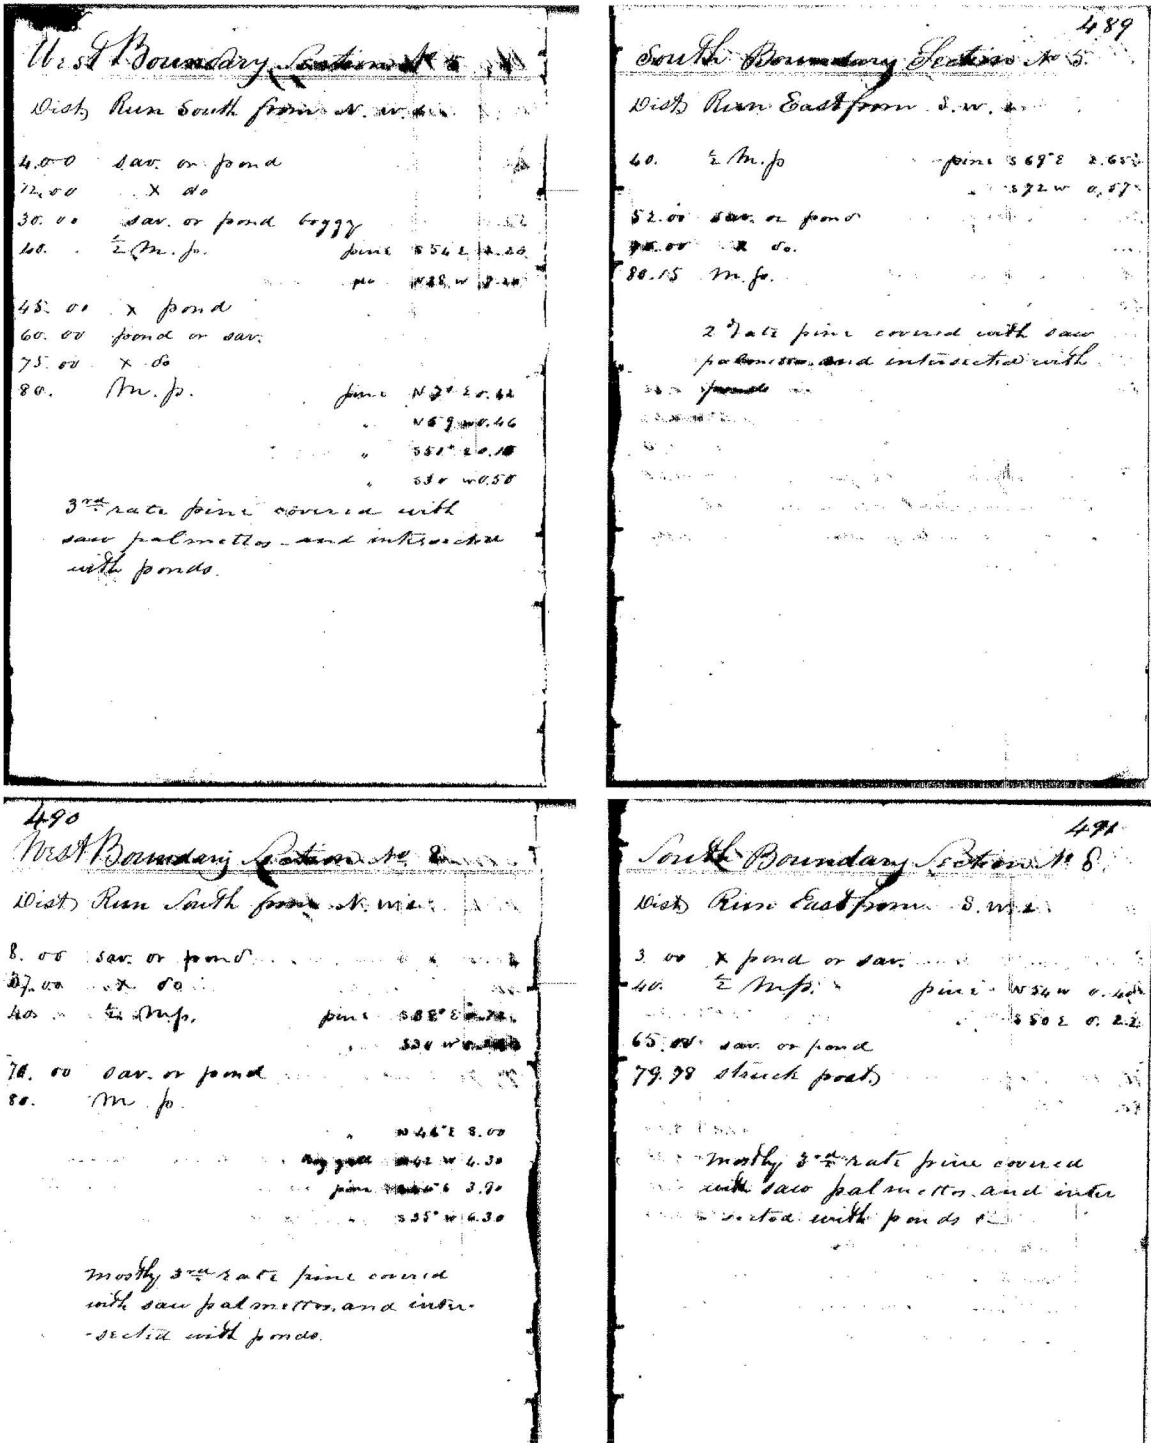 West Boundary Section No 5
Dist Run South from N. W.
4.00 sav. or pond
12.00 x do
30.00 sav. or pond boggy
40. ½ M. p. pine S 54 E
N 28 W
45.00 x pond
60.00 pond or sav.
75.00 x do
80. M. p. pine N E 0.42
" N 59 W 0.46
" S 51° E 0.18
" S 30 W 0.50
3rd rate pine covered with
saw palmettos and intersected
with ponds.
489
South Boundary Section No 5
Dist Run East from S. W.
40. ½ M. p pine S 69° E 2.65
" S 72 W 0.57
52.00 sav. or pond
x do.
80.15 M. p.
2 rate pine covered with saw
palmettos and intersected with
ponds
490
West Boundary Section No 8
Dist Run South from N. W.
8.00 sav. or pond
x do
40 ½ M p. pine S 88° E
" S 30 W
70.00 sav. or pond
80. M. p.
" N 46° E 8.00
Bay gall W 4.30
pine 3.90
" S 35° W 6.30
mostly 3rd rate pine covered
with saw palmettos, and inter-
-sected with ponds.
491
South Boundary Section No 8.
Dist Run East from S. W.
3.00 x pond or sav.
40. ½ M p. pine N 54 W
" S 50 E 0.22
65.00 sav. or pond
79.98 struck post
mostly 3rd rate pine covered
with saw palmettos and inter
sected with ponds